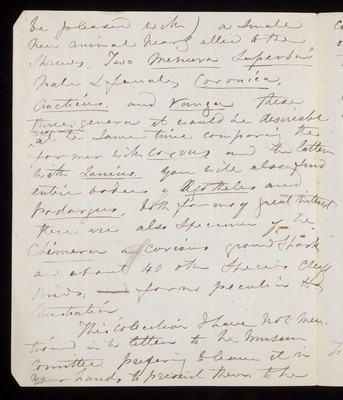 be pleased with) a small
new animal nearly allied to the
Shrews, Two Menura Superba's
Male & female, Coronica,
Cracticus and Vanga these
three genera it would be desireable
at the same time comparing the
former with Corvus and the latter
with Lanius. You will also find
entire bodies of Ægotheles and
Podargus, both forms of great interest
there are also Specimens of the
Chimera a Curious ground Shark
and about 40 other Species chiefly
birds, and forms peculiar to
Australia
This Collection I have not men-
tioned in the letter to the Museum
Comittee prefering to leave it in
your hands to present them to the